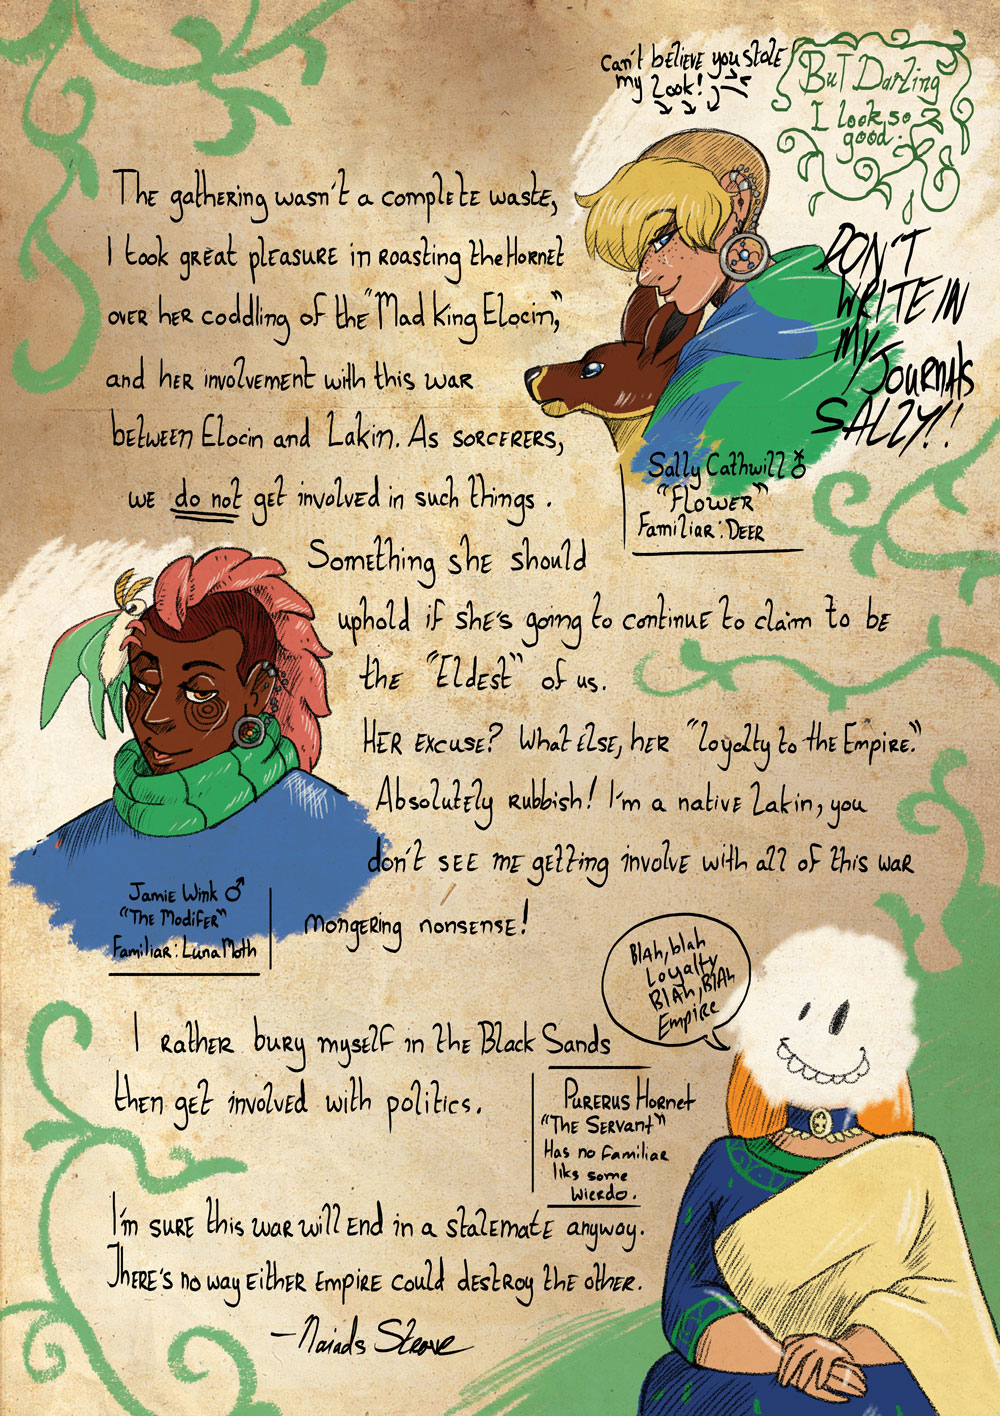 Can't believe you stole
my look!
But Darling
I look so
good.
DON'T
WRITE IN
MY
JOURNALS
SALLY!!
The gathering wasn't a complete waste,
I took great pleasure in roasting the Hornet
over her coddling of the "Mad King Elocin,"
and her involvement with this war
between Elocin and Lakin. As sorcerers,
we do not get involved in such things.
Sally Cathwill
"Flower"
Familiar: Deer
Something she should
uphold if she's going to continue to claim to be
the "Eldest" of us.
Her excuse? What else, her "loyalty to the Empire."
Absolutely rubbish! I'm a native Lakin, you
don't see me getting involve with all of this war
mongering nonsense!
Jamie Wink ♂
"The Modifer"
Familiar: Luna Moth
Blah, blah
Loyalty
Blah, Blah
Empire
I rather bury myself in the Black Sands
then get involved with politics.
Purerus Hornet
"The Servant"
Has no familiar
liks some
wierdo.
I'm sure this war will end in a stalemate anyway.
There's no way either empire could destroy the other.
—Naiads